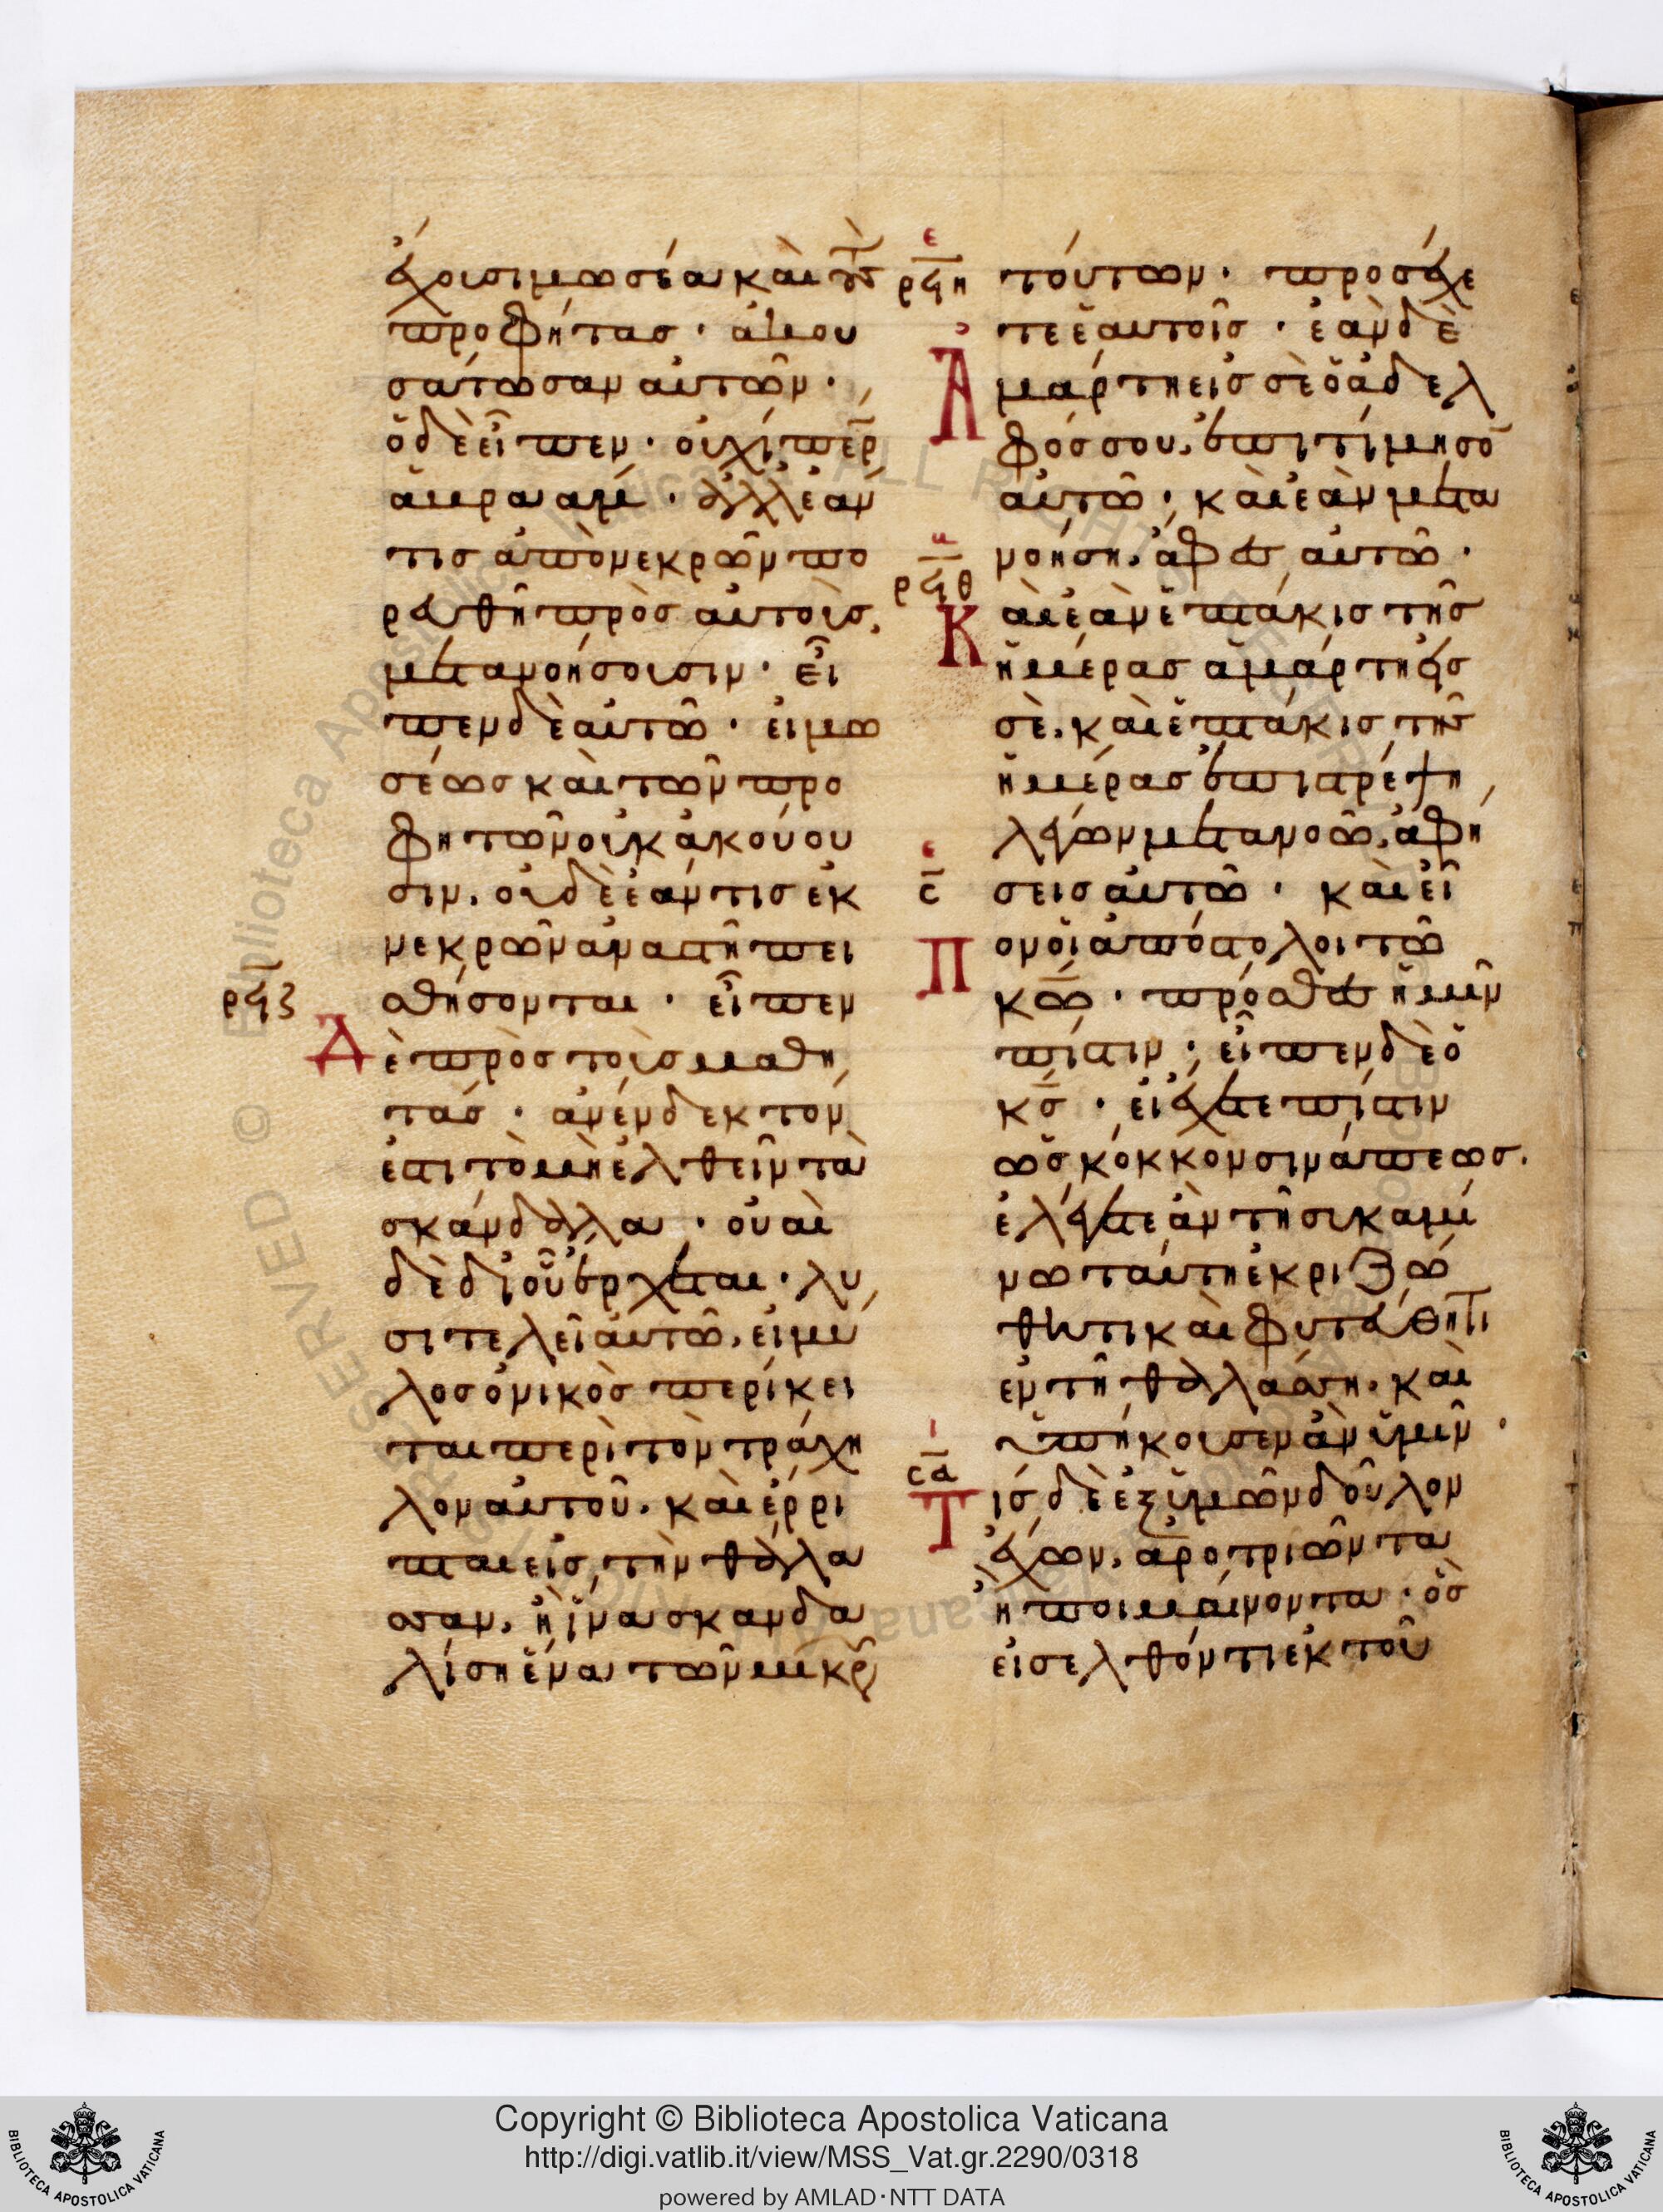 ἔχουσι μωσέα καὶ τοὺς
προφήτας · ἀκου
σάτωσαν αὐτῶν ·
ὁ δὲ εἶπεν · οὐχί περ
ἀβρααμ · ἀλλ ἐάν
τις ἀπὸ νεκρῶν πο
ρευθῆ πρὸς αὐτοὺς,
μετανοήσουσιν · εἶ
πεν δὲ αὐτῶ · εἰ μω
σέως καὶ τῶν προ
φητῶν οὐκ ἀκούου
σιν, οὐδὲ ἐάν τις ἐκ
νεκρῶν ἀναστῆ πει
σθήσονται · εἶπεν
ρϟζ
Δὲ πρὸς τοὺς μαθη
τάς · ἀνένδεκτον
ἐστι τὸ μὴ ἐλθεῖν τὰ
σκάνδαλα · οὐαὶ
δὲ δι οὗ ἔρχεται · λυ
σιτελεῖ αὐτῶ, εἰ μυ
λος ὀνικὸς περίκει
ται περὶ τὸν τράχη
λον αὐτοῦ, καὶ ἔρρι
πται εἰς τὴν θάλα
σσαν, ἢ ἵνα σκανδα
λίση ἕνα τῶν μικρῶ
ε
ρϟη
τούτων · προσέχε
τε ἑαυτοῖς · ἐὰν δὲ
Ἁμάρτη εἰς σὲ ὁ ἀδελ
φός σου, ἐπιτίμησο
αὐτῶ · καὶ ἐὰν μετα
νοήση, ἄφες αὐτῶ ·
ρϟθ
Καὶ ἐὰν ἑπτάκις τῆς
ἡμέρας ἁμάρτη εἰς
σὲ, καὶ ἑπτάκις τῆς
ἡμέρας ἐπιστρέψη
λέγων μετανοῶ, ἀφη
ς
σεις αὐτῶ · καὶ εἶ
Πον οἱ ἀπόστολοι τῶ
κω · πρόσθες ἡμῖν
πίστιν · εἶπεν δὲ ὁ
κς · εἰ ἔχετε πίστιν
ὡς κόκκον σινάπεως,
ἐλέγετε ἂν τῆ συκαμί
νω ταύτη ἐκριζώ
θητι καὶ φυτεύθητι
ἐν τῆ θαλάσση, καὶ
ὑπήκουσεν ἂν ὑμῖν ·
ι
σα
Τίς δὲ ἐξ ὑμῶν δοῦλον
ἔχων, ἀροτριῶντα
ἢ ποιμαίνοντα · ὃς
εἰσελθόντι ἐκ τοῦ
Copyright © Biblioteca Apostolica Vaticana
http://digi.vatlib.it/view/MSS_Vat.gr.2290/0318
powered by AMLAD·NTT DATA
BIBLIOTECA APOSTOLICA VATICANA
BIBLIOTECA APOSTOLICA VATICANA